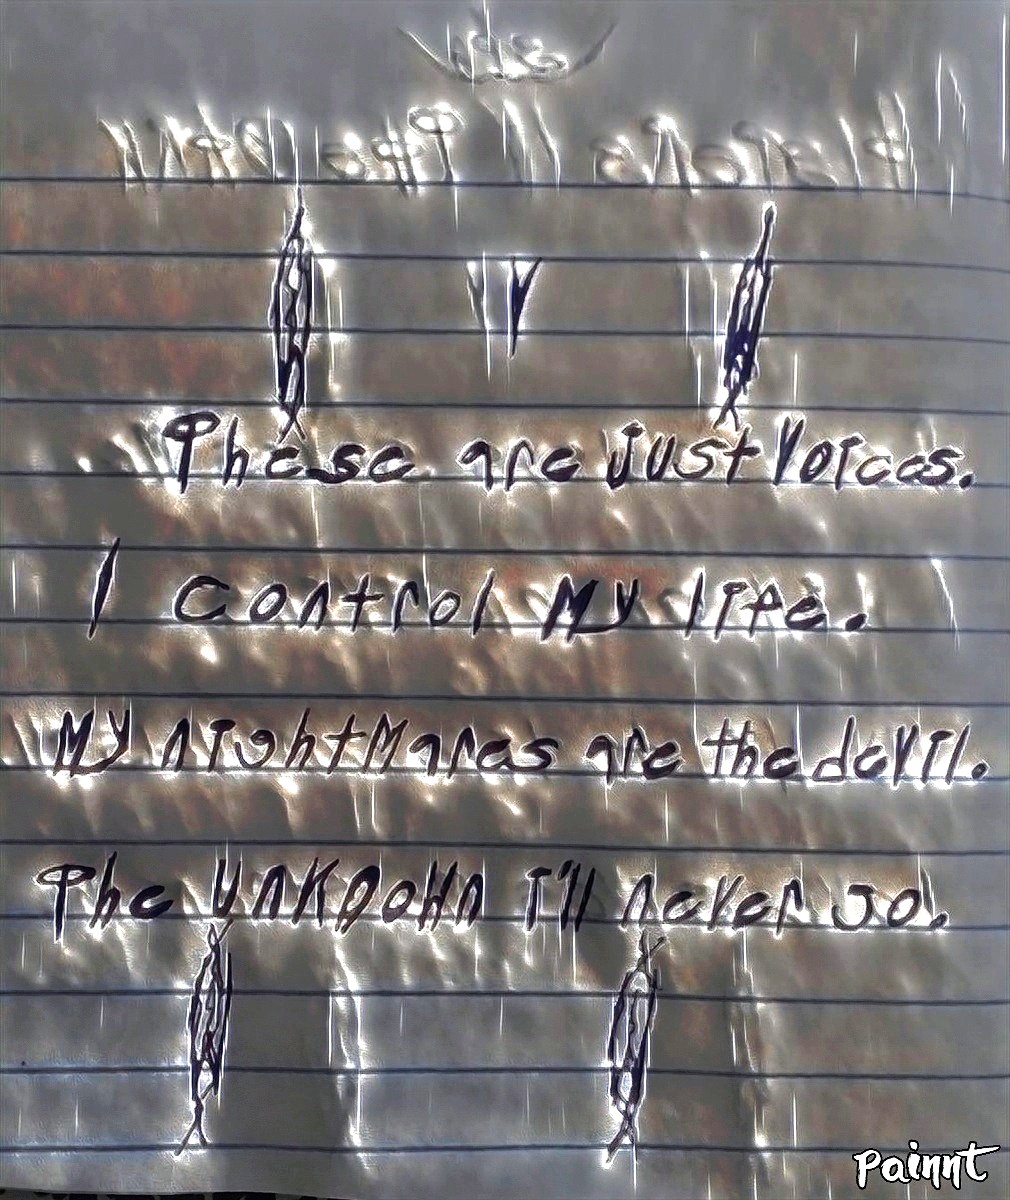 These are just voices.
I control my life.
My nightmares are the devil.
The unknown I'll never go.
Painnt